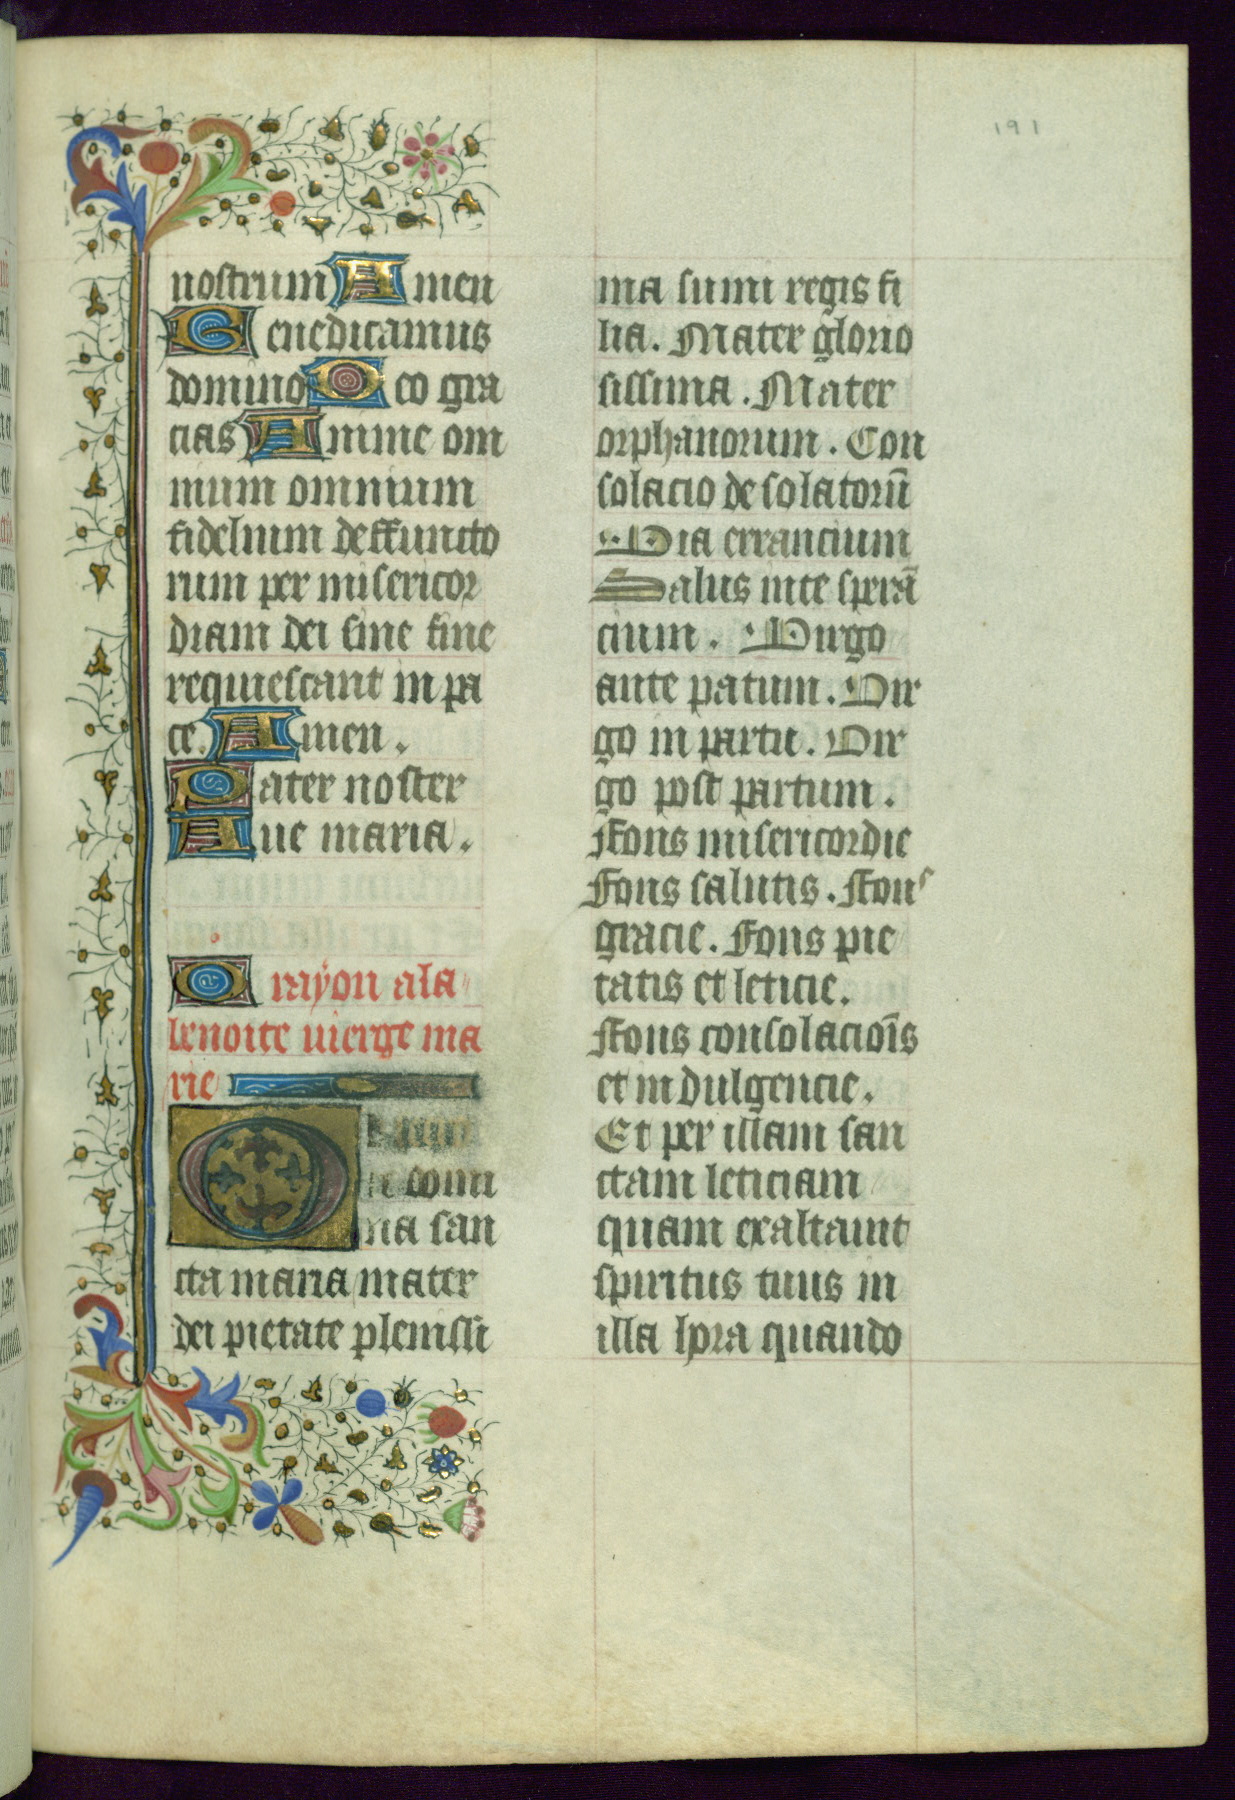 191
nostrum Amen
Benedicamus
domino Deo gra
cias Anime om
nium omnium
fidelium deffuncto
rum per misericor
diam dei sine fine
requiescant in pa
ce. Amen.
Pater noster
Aue maria.
Orayon a la
benoite uierge ma
rie
O
domi
na san
cta maria mater
dei pietate plenissi
ma sumi regis fi
lia. Mater glorio
sissima. Mater
orphanorum. Con
solacio desolatorū
Via errancium
Salus in te sperā
cium. Virgo
ante patum. Vir
go in partu. Vir
go post partum.
Ffons misericordie
Fons salutis. Ffons
gracie. Fons pie
tatis et leticie.
Ffons consolacioīs
et indulgencie.
Et per illam san
ctam leticiam
quam exaltauit
spiritus tuus in
illa hora quando